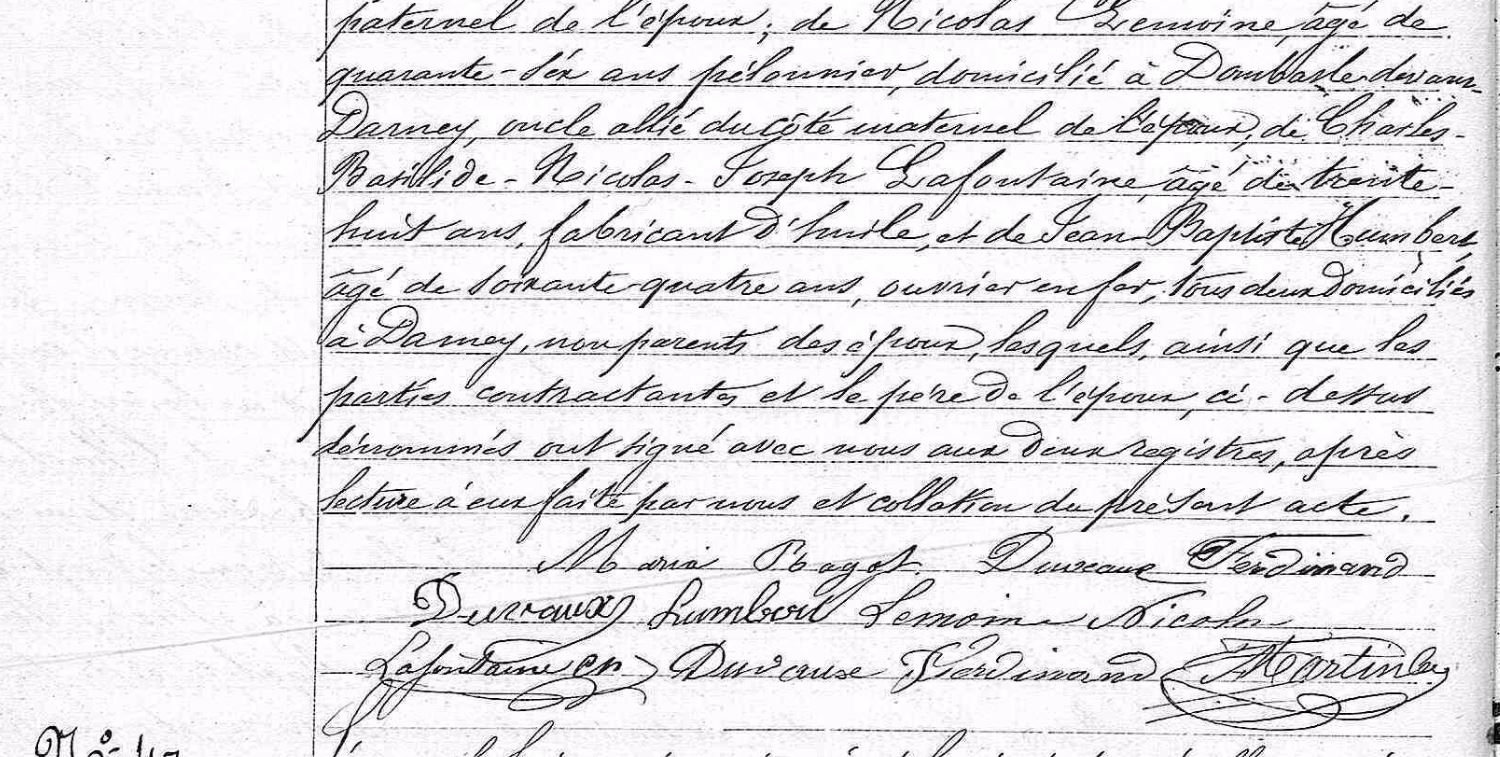 paternel de l'époux; de Nicolas Lemoine, âgé de
quarante-six ans, domicilié à Dombasle devant
Darney, oncle allié du côté maternel de l'époux, de Charles-
Basilide-Nicolas-Joseph Lafontaine, âgé de trente-
huit ans, fabricant d'huile, et de Jean-Baptiste Humbert,
âgé de soixante-quatre ans, ouvrier en fer, tous deux domiciliés
à Darney, non parents des époux, lesquels, ainsi que les
parties contractantes et le père de l'époux, ci-dessus
dénommés ont signé avec nous aux deux registres, après
lecture à eux faite par nous et collation du présent acte.
Maria Ragot Duvaux Ferdinand
Duvaux Humbert Lemoine Nicolas
Lafontaine Duvause Ferdinand